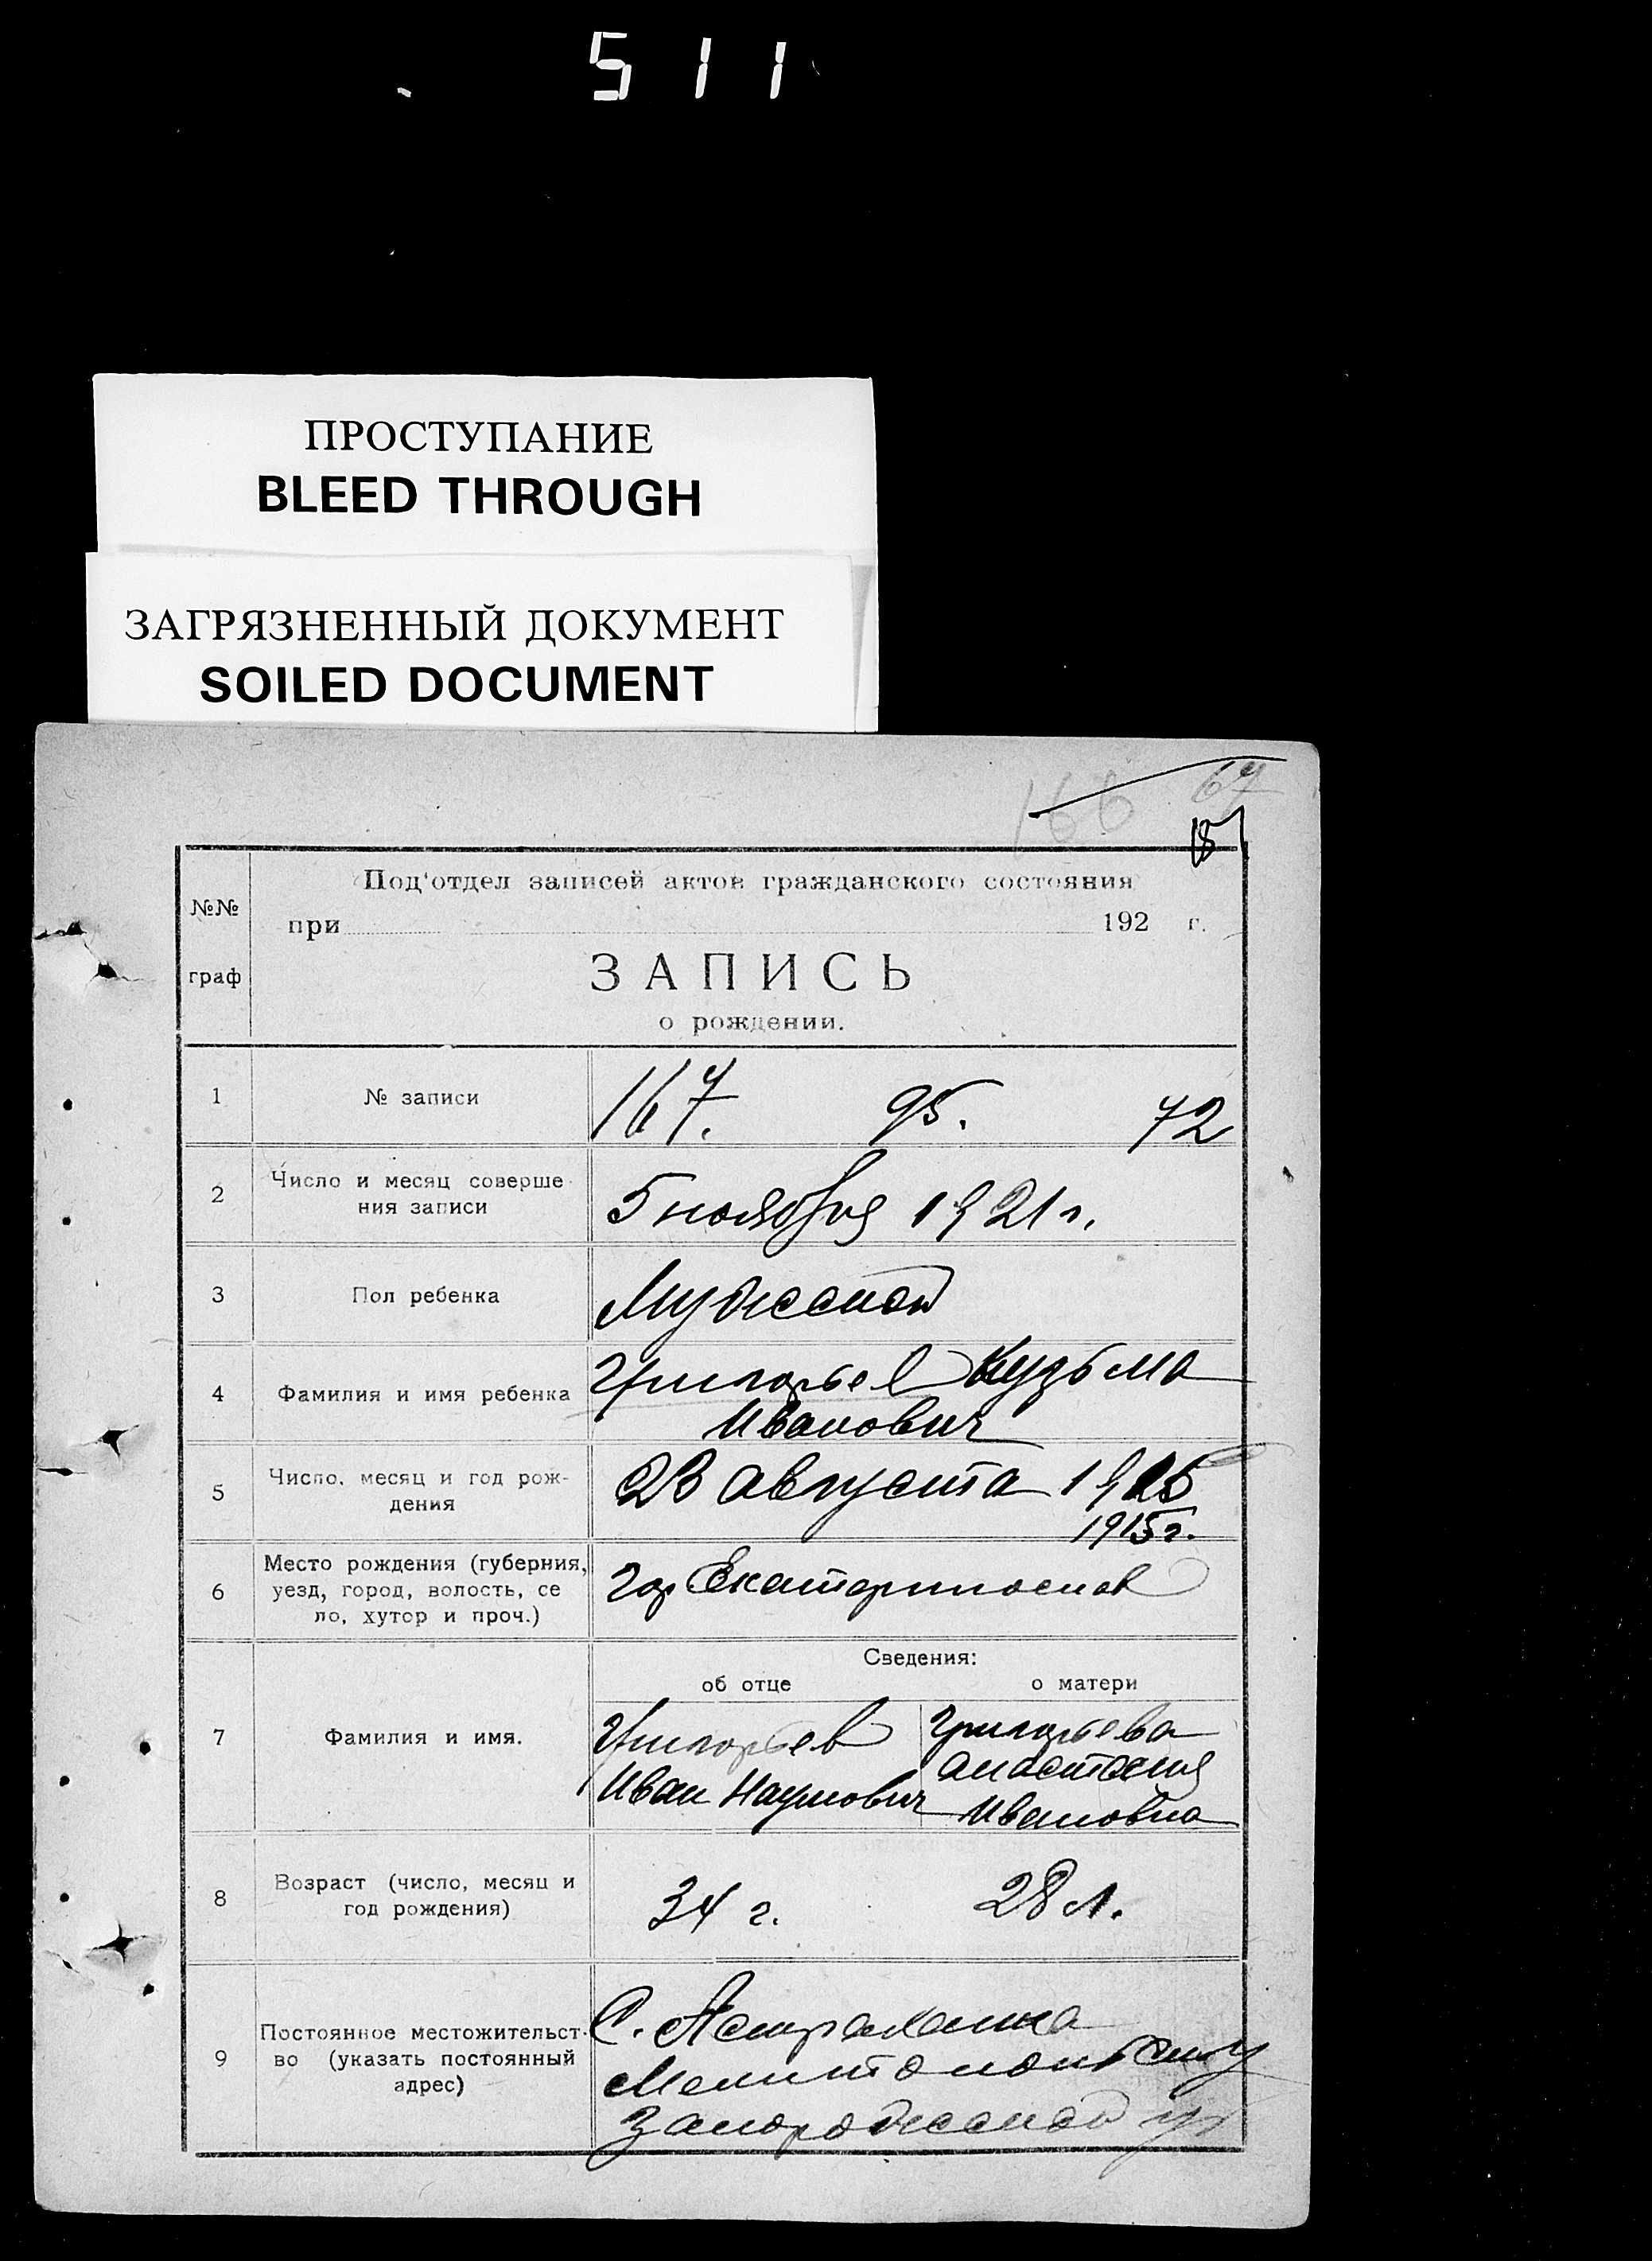 511
ПРОСТУПАНИЕ
BLEED THROUGH
ЗАГРЯЗНЕННЫЙ ДОКУМЕНТ
SOILED DOCUMENT
166 67
№№ граф
Под'отдел записей актов гражданского состояния
при 192 г.
ЗАПИСЬ
о рождении.
1 № записи 167. 95. 72
2 Число и месяц соверше-
ния записи
5 ноября 1921 г.
3 Пол ребенка Мужской
4 Фамилия и имя ребенка Григорьев Кузьма
Иванович
5 Число, месяц и год рож-
дения
23 августа 1915
1915 г.
6 Место рождения (губерния,
уезд, город, волость, се
ло, хутор и проч.)
гор Екатеринослав
Сведения:
об отце о матери
7 Фамилия и имя.
Григорьев
Иван Наумович
Григорьева
Анастасия
Ивановна
8 Возраст (число, месяц и
год рождения)
34 г. 28 л.
9 Постоянное местожительст-
во (указать постоянный
адрес)
С. Астраханка
Мелитопольск у
Запорожской губ